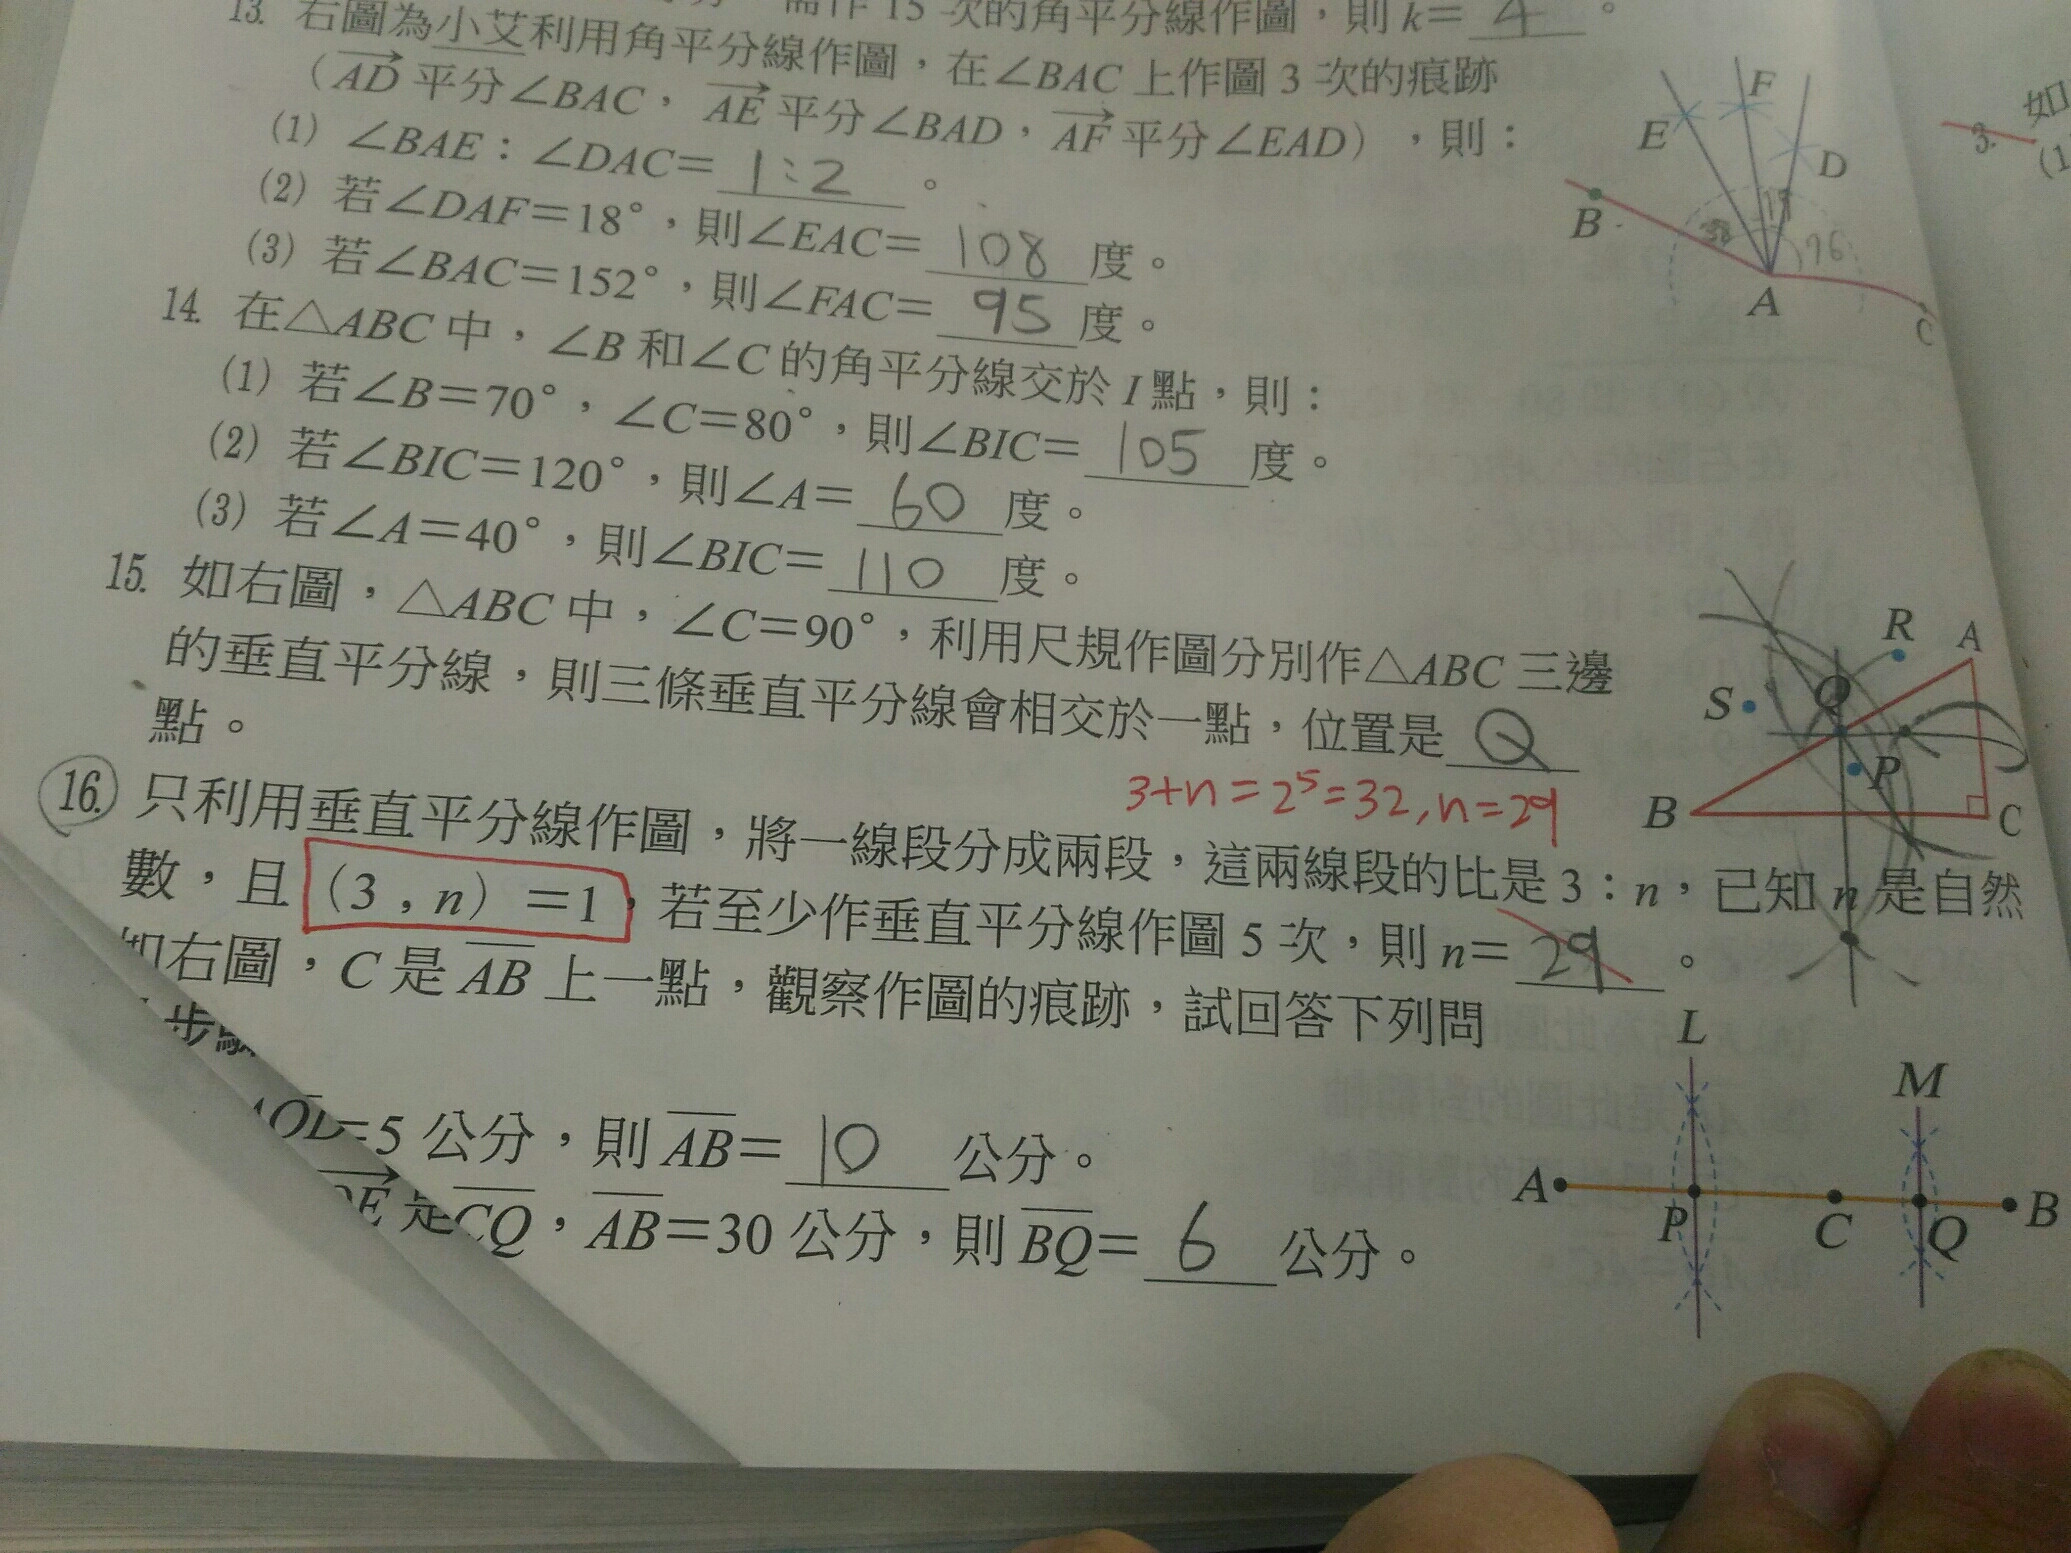 需作15次的角平分線作圖，則k=4。
13. 右圖為小艾利用角平分線作圖，在∠BAC上作圖3次的痕跡
（AD平分∠BAC，AE平分∠BAD，AF平分∠EAD），則：
(1) ∠BAE：∠DAC=1:2。
(2) 若∠DAF=18°，則∠EAC=108度。
(3) 若∠BAC=152°，則∠FAC=95度。
E
F
D
B
18
38
76
A
C
14. 在△ABC中，∠B和∠C的角平分線交於I點，則：
(1) 若∠B=70°，∠C=80°，則∠BIC=105度。
(2) 若∠BIC=120°，則∠A=60度。
(3) 若∠A=40°，則∠BIC=110度。
15. 如右圖，△ABC中，∠C=90°，利用尺規作圖分別作△ABC三邊
的垂直平分線，則三條垂直平分線會相交於一點，位置是Q
點。
R
A
S
Q
P
B
C
3+n=2⁵=32, n=29
16. 只利用垂直平分線作圖，將一線段分成兩段，這兩線段的比是3：n，已知n是自然
數，且（3，n）=1，若至少作垂直平分線作圖5次，則n=29。
如右圖，C是AB上一點，觀察作圖的痕跡，試回答下列問
步驟
=5公分，則AB=10公分。
是CQ，AB=30公分，則BQ=6公分。
L
M
A
P
C
Q
B
3. 如
(1